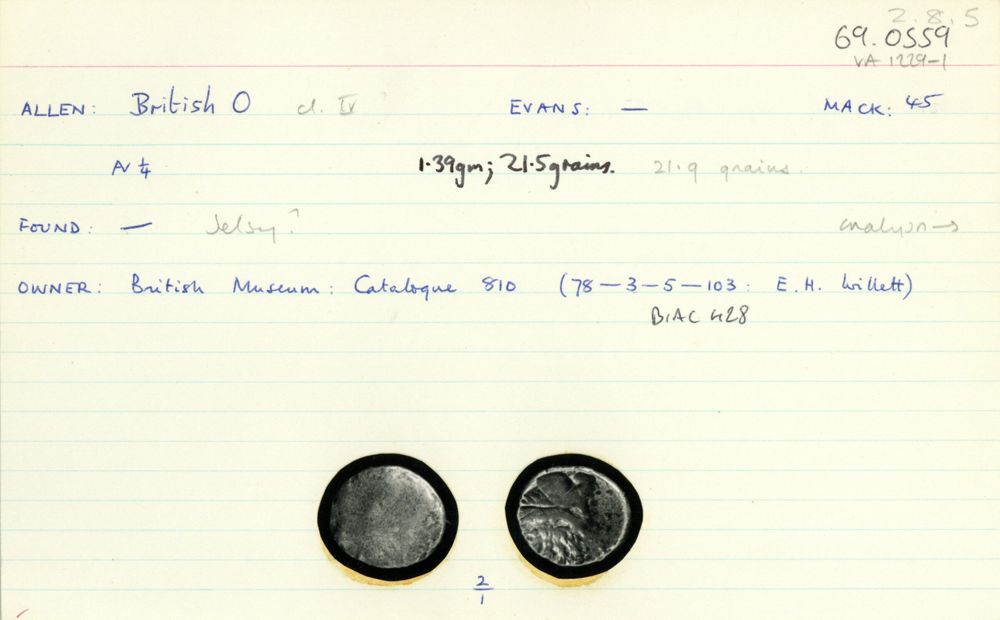 2.8.5
69.0559
VA 1229-1
ALLEN: British O cl. IV EVANS: — MACK: 45
AV 1/4 1.39gm; 21.5grains. 21.9 grains.
FOUND: — Selsey?
OWNER: British Museum: Catalogue 810 (78-3-5-103: E.H. Willett)
BMC 428
2/1